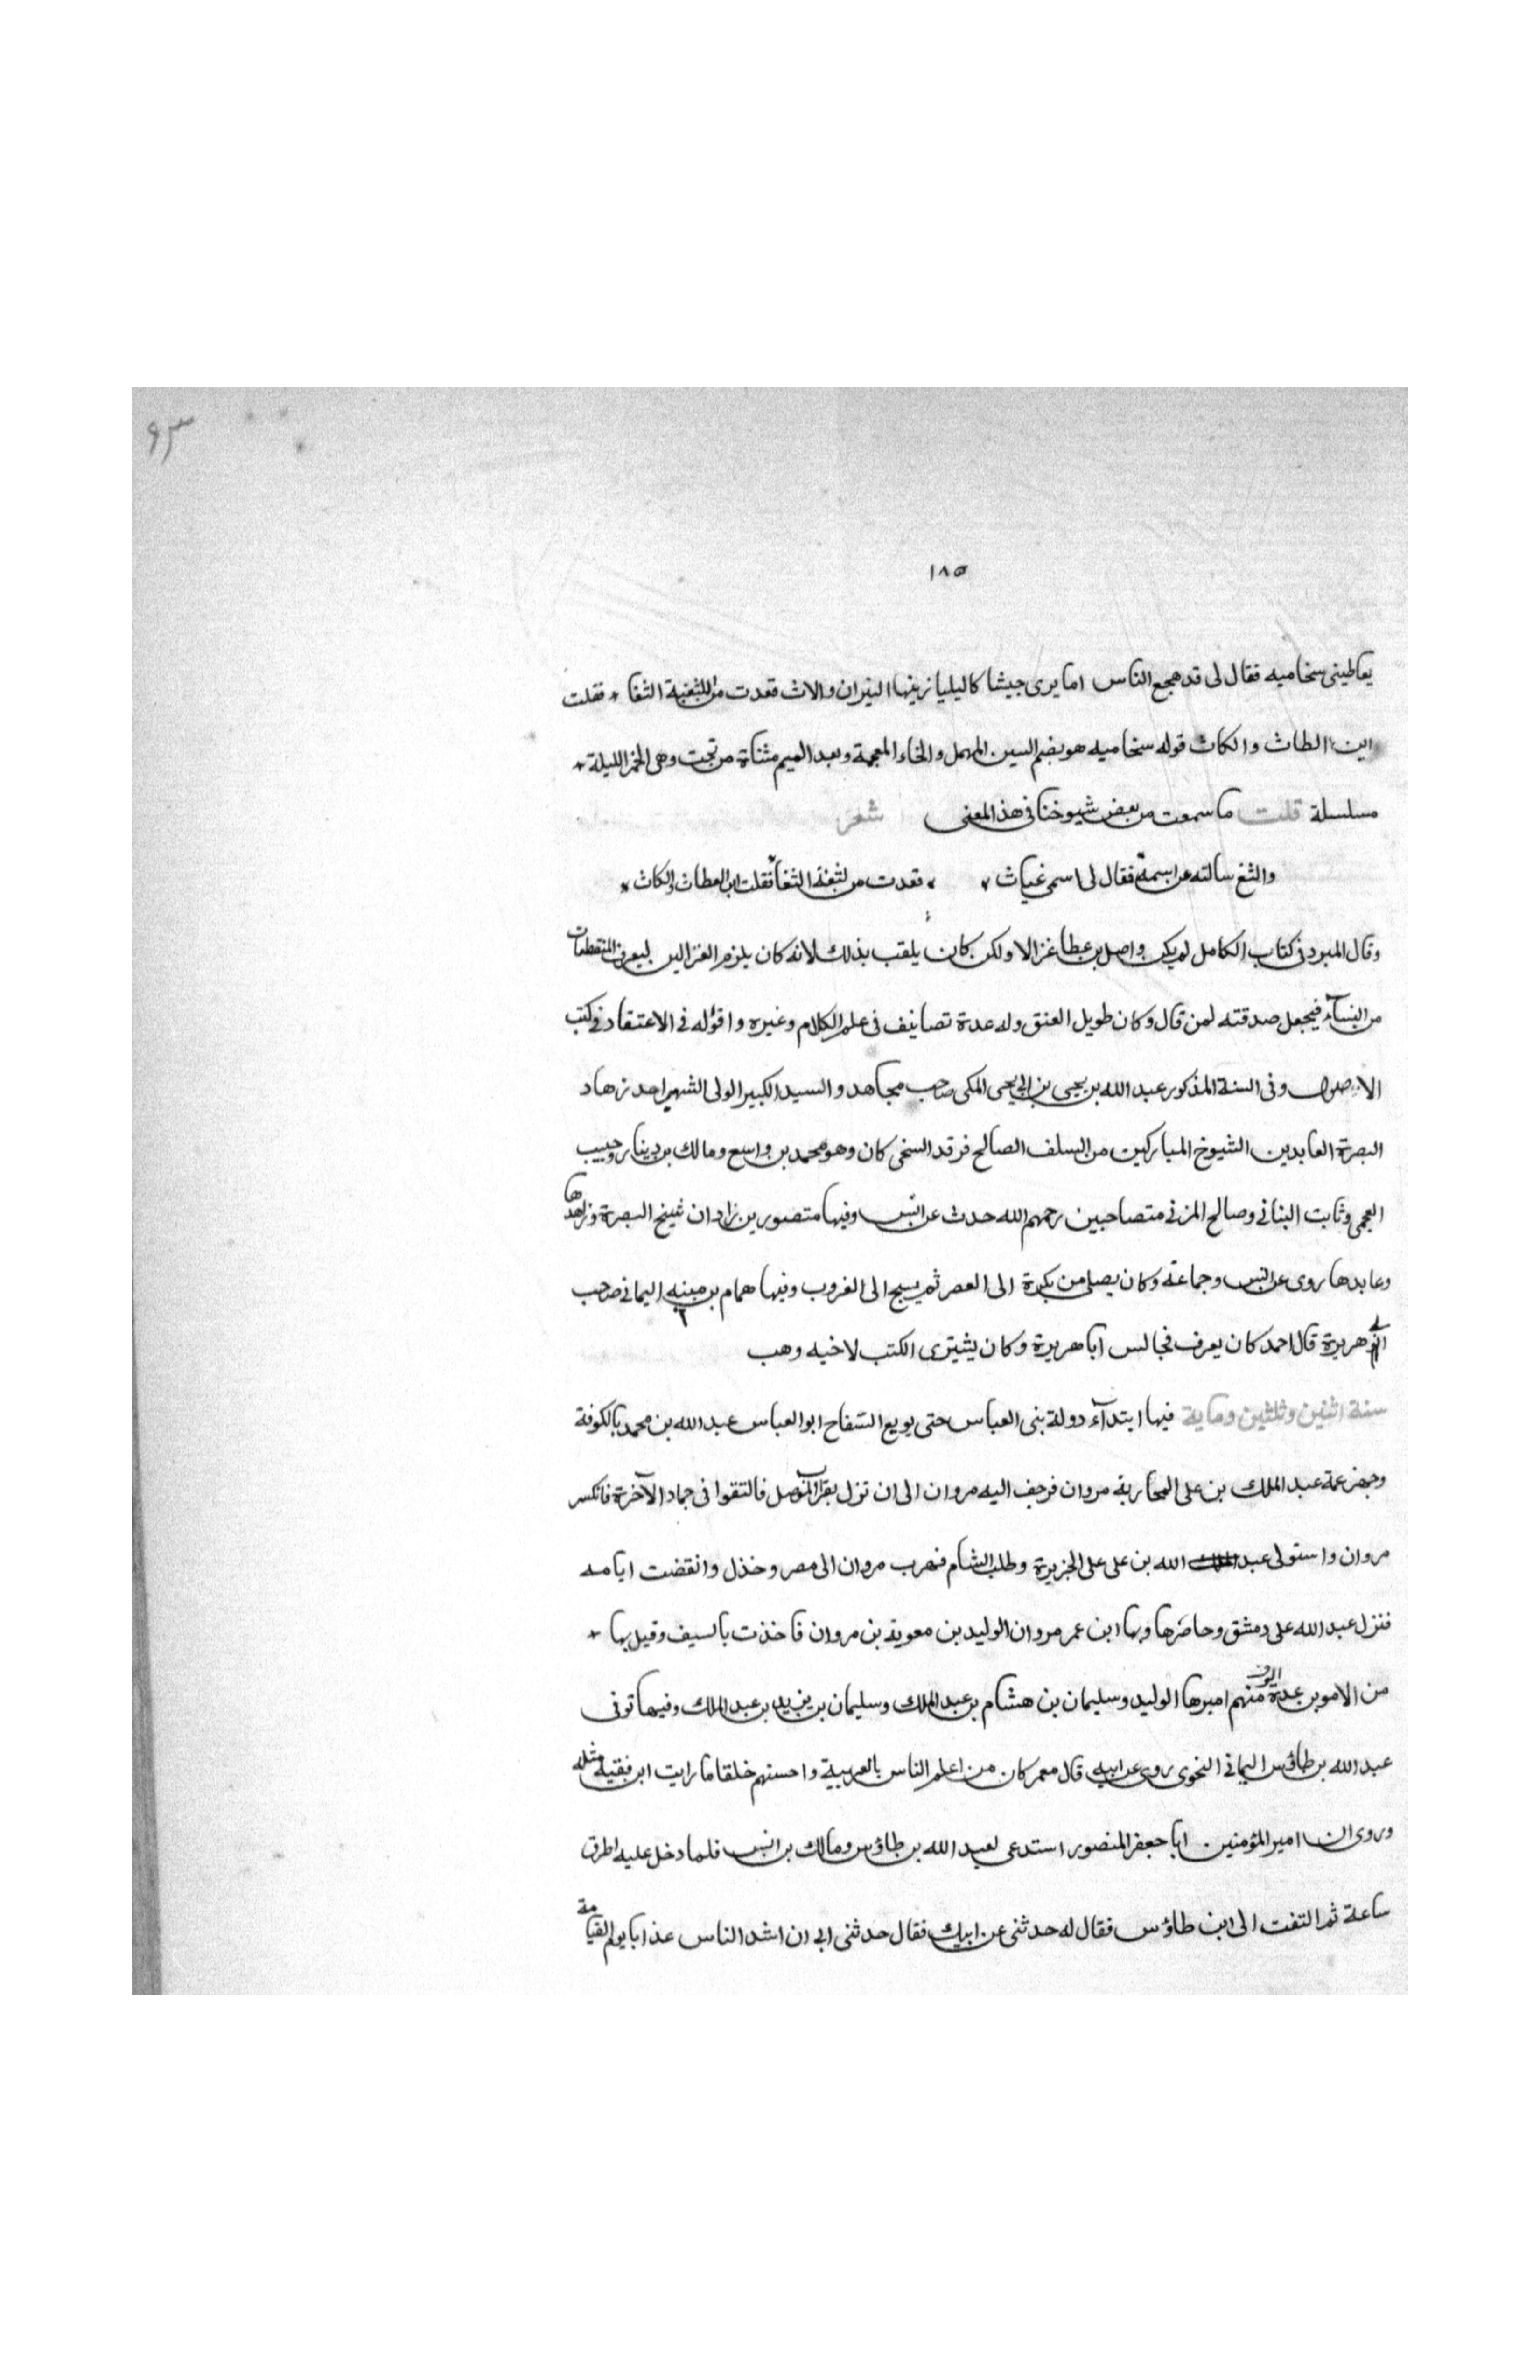 ١٨٥
يعاطيني سخاميه فقال لى قد هجع الناس اما يرى جيشا كاليليا نرينها النيران والاث فعدت من للثغية الثغا * فقلت
اين الطاث والكاث قوله سخاميه هو بضم السين المهمل والخاء المعجمة وبعد الميم مثناة من تحت وهى الخمر الليلة *
مسلسلة قلت ما سمعت من بعض شيوخنا فى هذ المعنى شعر
والثغ سالته عن اسمه فقال لى اسمى غياث * * فعدت من لثغة الثغا فقلت اين العطاث والكاث *
وقال المبرد فى كتاب الكامل لم يكن واصل بن عطا غزالا ولكن كان يلقب بذلك لانه كان يلزم الغزالين ليعرف المتقطعات
من النساء فيجعل صدقته لمن قال وكان طويل العنق وله عدة تصانيف فى علم الكلام وغيره واقواله فى الاعتقاد فى كتب
الاصول وفى السنة المذكور عبد الله بن يحيى بن ابى يحيى المكى صاحب مجاهد والسيد الكبير الولى الشهير احد زهاد
البصرة العابدين الشيوخ المباركين من السلف الصالح فرقد السخى كان وهو محمد بن واسع ومالك بن دينار وحبيب
العجمى وثابت البنانى وصالح المزنى متصاحبين رحمهم الله حدث عن انس وفيها متصور بن زادان شيخ البصرة وزاهدها
وعابدها روى عن انس وجماعة وكان يصلى من بكرة الى العصر ثم يسبح الى الغروب وفيها همام بن منبه اليمانى صاحب
ابى هريرة قال احمد كان يعرف فجالس ابا هريرة وكان يشترى الكتب لاخيه وهب
سنة اثنين وثلثين وماية فيها ابتدآء دولة بنى العباس حتى بويع السفاح ابو العباس عبد الله بن محمد بالكوفة
وجهز عمه عبد الملك بن على المحاربة مروان فرجف اليه مروان الى ان نزل بقراب الموصل فالتقوا فى جماد الآخرة فانكسر
مروان واستولى عبد الله بن على على الجزيرة وطلب الشام فهرب مروان الى مصر وخذل وانقضت ايامه
فنزل عبد الله على دمشق وحاصرها وبها ابن عمر مروان الوليد بن معوية بن مروان فاخذت بالسيف وقيل بها *
من الامو بن عدة الوف منهم اميرها الوليد وسليمان بن هشام بن عبد الملك وسليمان بن يزيد بن عبد الملك وفيها توفى
عبد الله بن طاؤس اليمانى النحوى روى عن ابيه قال معمر كان من اعلم الناس بالعربية واحسنهم خلقا ما رايت ابن فقيه مثله
وروى ان امير المؤمنين ابا جعفر المنصور استدعى لعبد الله بن طاؤس ومالك بن انس فلما دخل عليه اطرق
ساعة ثم التفت الى ابن طاؤس فقال له حدثنى عن ابيك فقال حدثنى ابى ان اشد الناس عذابا يوم القيامة